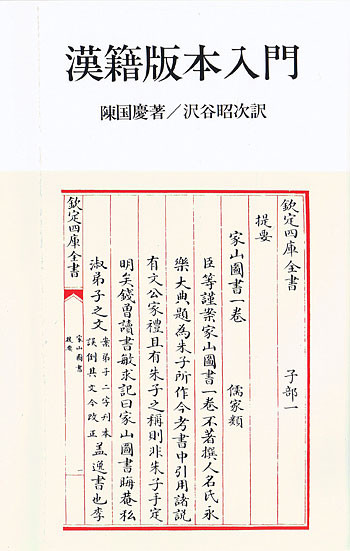 漢籍版本入門
陳国慶著／沢谷昭次訳
欽定四庫全書　子部一
提要
家山圖書一卷　儒家類
臣等謹案家山圖書一卷不著撰人名氏永
樂大典題為朱子所作今考書中引用諸説
有文公家禮且有朱子之稱則非朱子手定
明矣錢曾讀書敏求記曰家山圖書晦菴私
淑弟子之文
案弟子二字刋本
誤倒其文今改正
蓋逸書也李
欽定四庫全書
家山圖書
提要
一